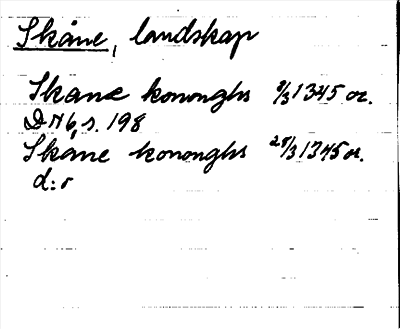 Skåne, landskap
Skane kononghs 8/3 1345 or.
DN 6, s. 198
Skåne kononghs 25/3 1345 or.
d:o